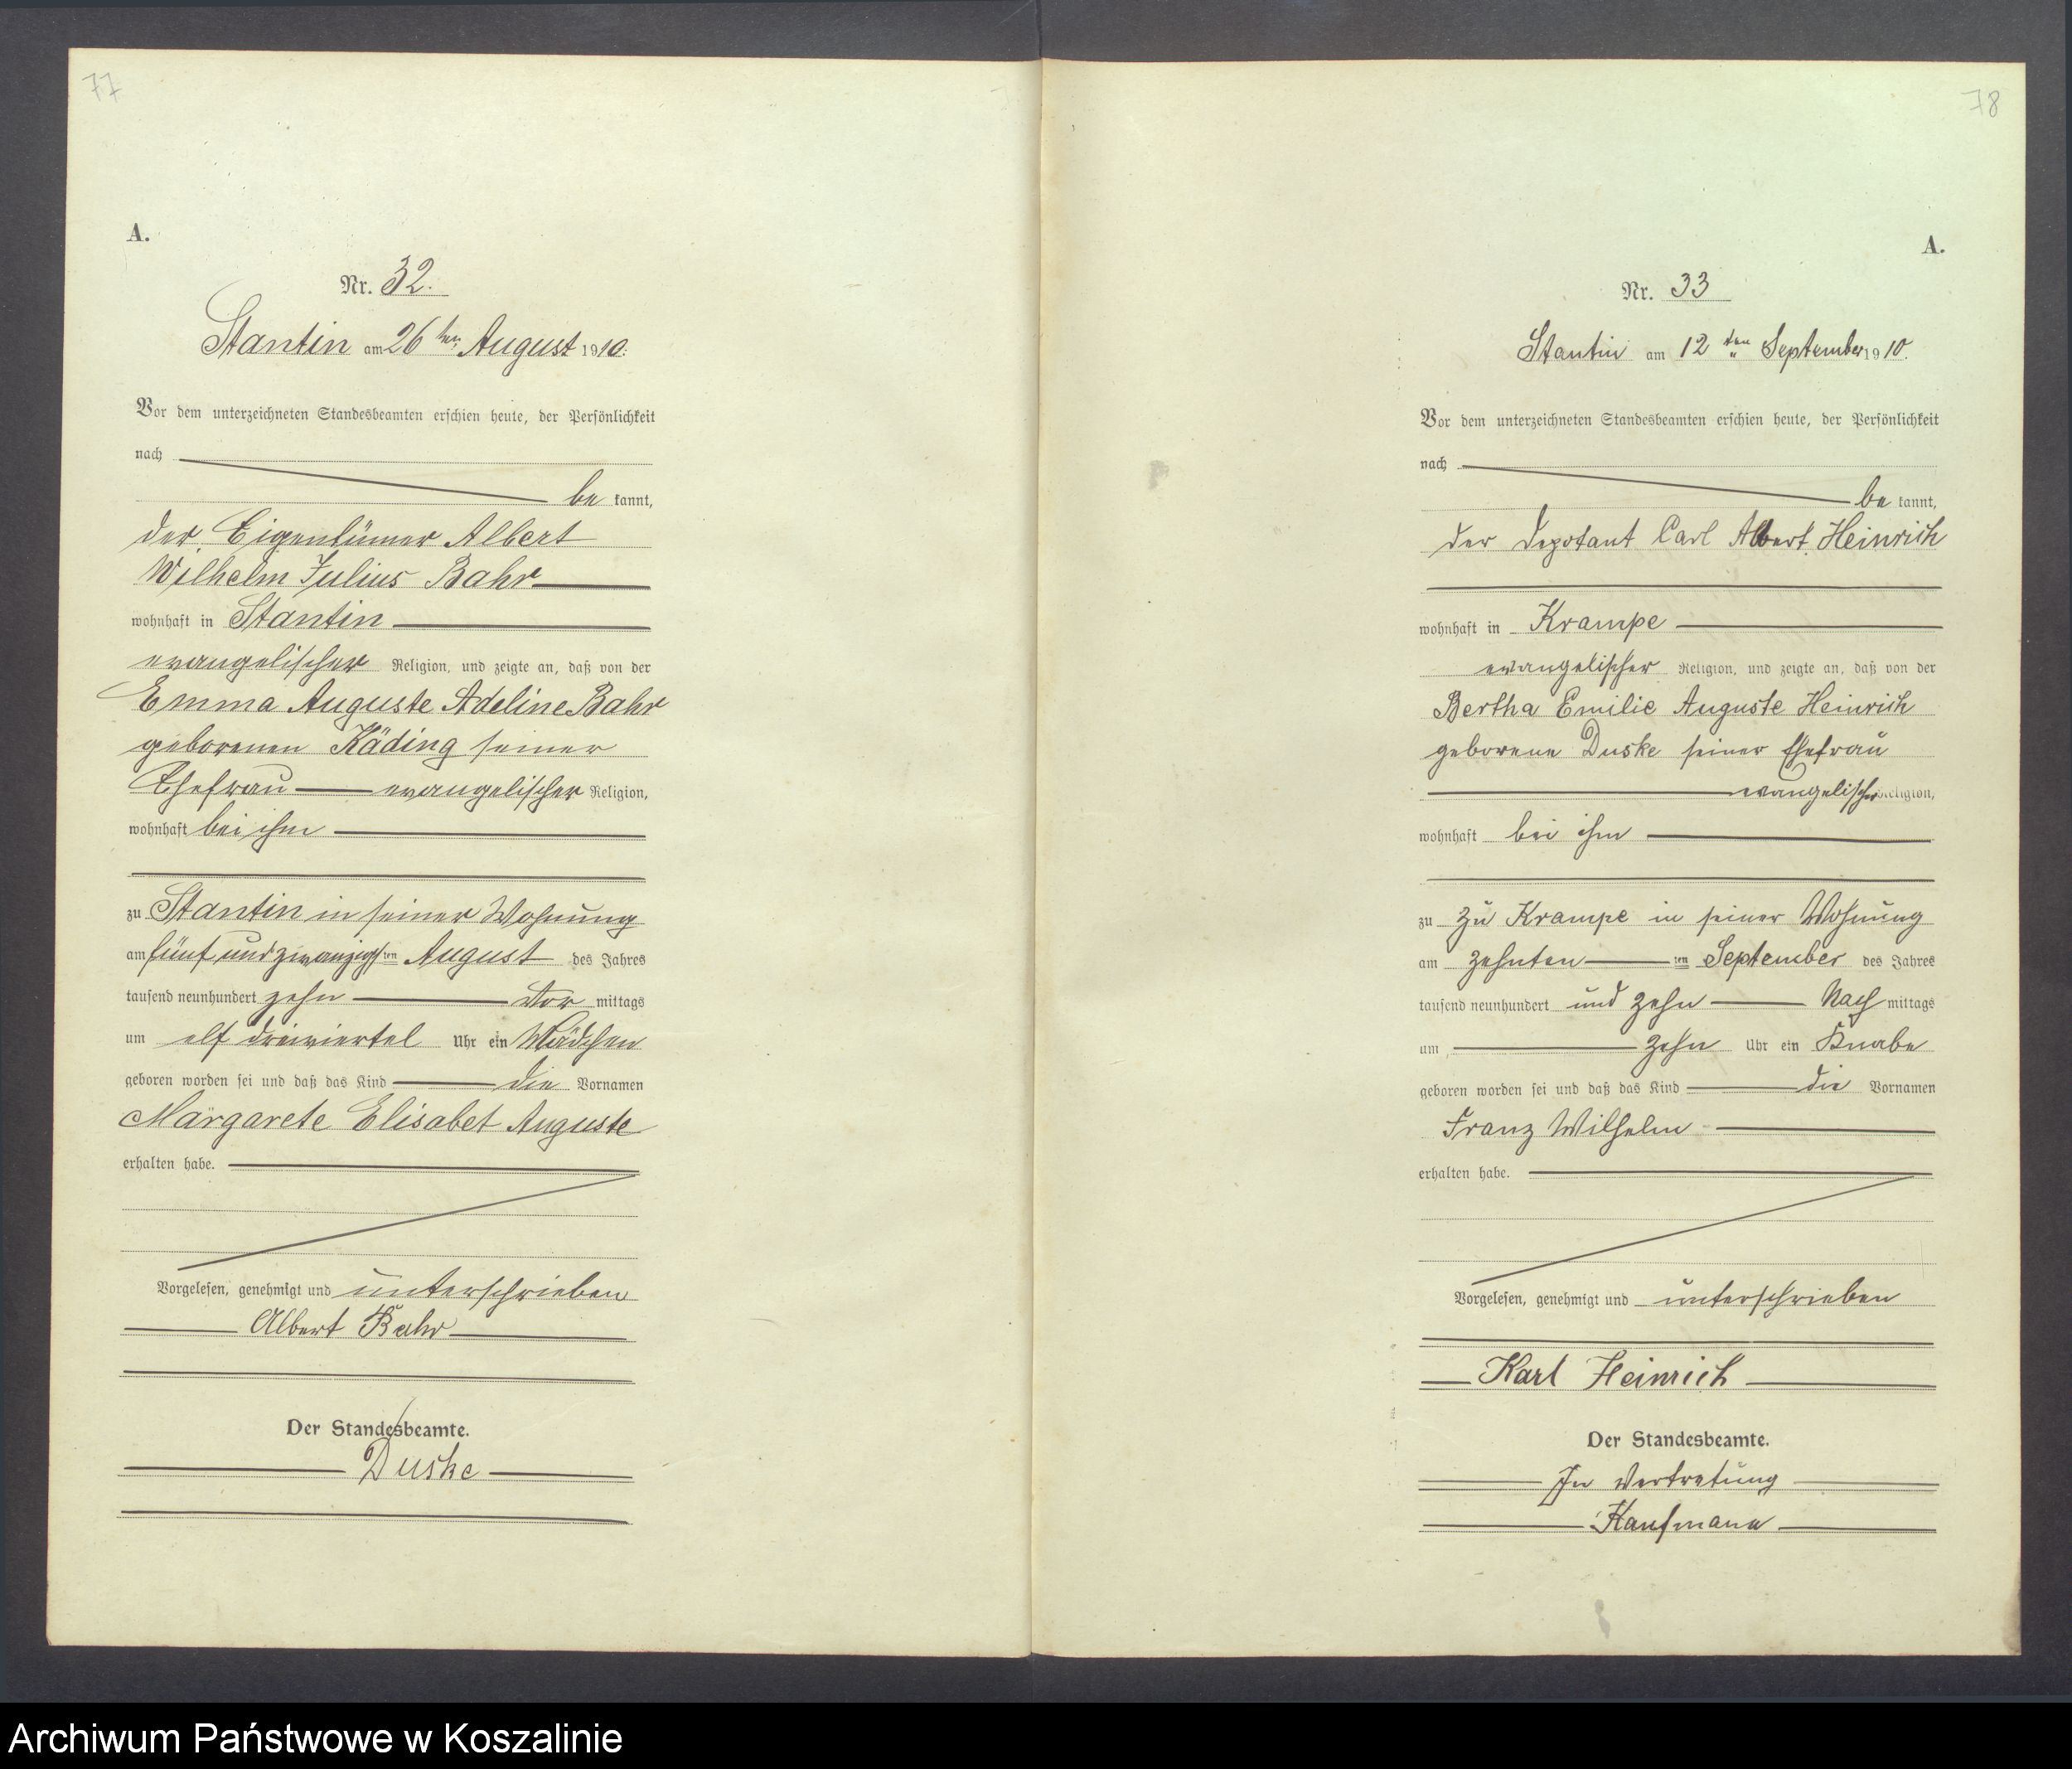 77
A.
Nr. 32.
Stantin am 26ten August 1910.
Vor dem unterzeichneten Standesbeamten erschien heute, der Persönlichkeit
nach
be kannt,
der Eigentümer Albert
Wilhelm Julius Bahr
wohnhaft in Stantin
evangelischer Religion, und zeigte an, daß von der
Emma Auguste Adeline Bahr
geborenen Käding seiner
Ehefrau evangelischer Religion,
wohnhaft bei ihm
zu Stantin in seiner Wohnung
am fünf und zwanzigsten August des Jahres
tausend neunhundert zehn Vor mittags
um elf dreiviertel Uhr ein Mädchen
geboren worden sei und daß das Kind die Vornamen
Margarete Elisabet Auguste
erhalten habe.
Vorgelesen, genehmigt und unterschrieben
Albert Bahr
Der Standesbeamte.
Duske
78
A.
Nr. 33
Stantin am 12ten September 1910.
Vor dem unterzeichneten Standesbeamten erschien heute, der Persönlichkeit
nach
be kannt,
der Depotant Carl Albert Heinrich
wohnhaft in Krampe
evangelischer Religion, und zeigte an, daß von der
Bertha Emilie Auguste Heinrich
geborene Duske seiner Ehefrau
evangelischer Religion,
wohnhaft bei ihm
zu zu Krampe in seiner Wohnung
am zehnten ten September des Jahres
tausend neunhundert und zehn Nach mittags
um zehn Uhr ein Knabe
geboren worden sei und daß das Kind die Vornamen
Franz Wilhelm
erhalten habe.
Vorgelesen, genehmigt und unterschrieben
Karl Heinrich
Der Standesbeamte.
In Vertretung
Kaufmann
Archiwum Państwowe w Koszalinie